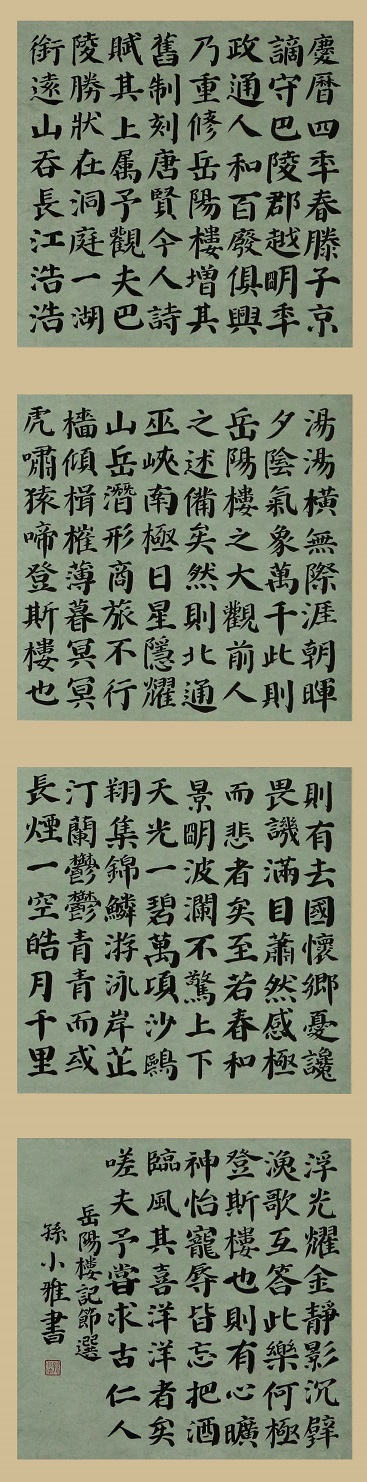 慶曆四秊春滕子京
謫守巴陵郡越眀秊
政通人和百廢俱興
乃重修岳陽樓增其
舊制刻唐賢今人詩
賦其上属予觀夫巴
陵勝狀在洞庭一湖
銜遠山吞長江浩浩
湯湯橫無際涯朝暉
夕陰氣象萬千此則
岳陽樓之大觀前人
之述備矣然則北通
巫峽南極日星隱耀
山岳潛形商旅不行
檣傾楫摧薄暮冥冥
虎嘯猿啼登斯樓也
則有去國懷鄉憂讒
畏譏滿目蕭然感極
而悲者矣至若春和
景眀波瀾不驚上下
天光一碧萬頃沙鷗
翔集錦鱗游泳岸芷
汀蘭鬱鬱青青而或
長煙一空皓月千里
浮光耀金靜影沉璧
漁歌互答此樂何極
登斯樓也則有心曠
神怡寵辱皆忘把酒
臨風其喜洋洋者矣
嗟夫予嘗求古仁人
岳陽樓記節選
孫小雅書